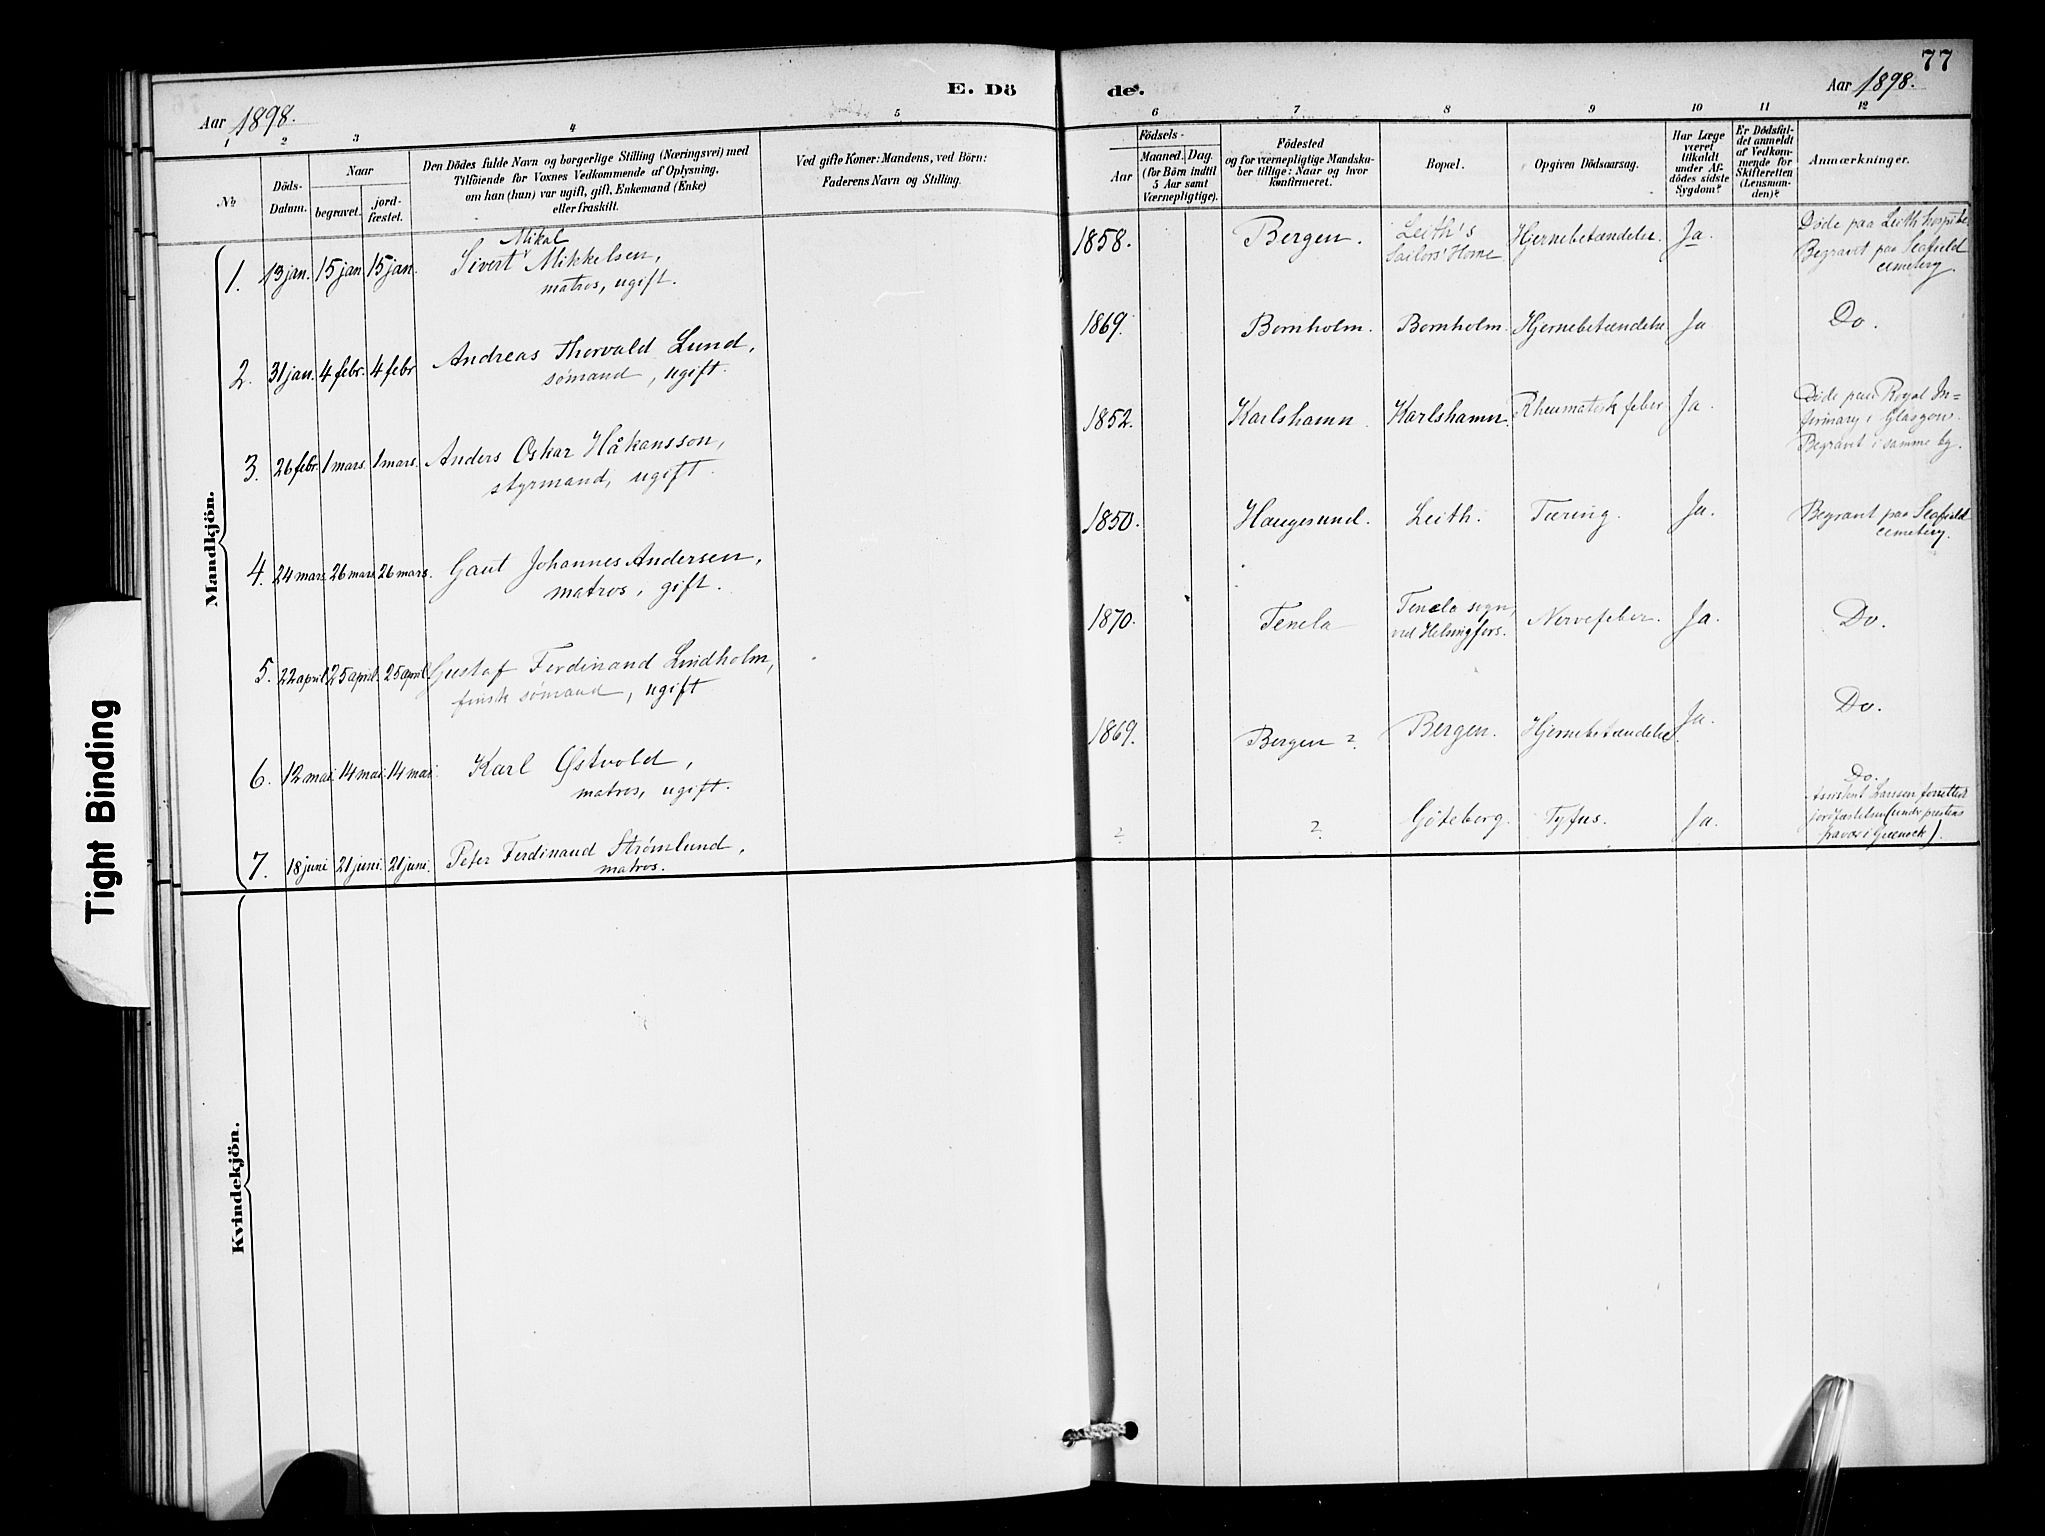 77
E. Döde.
Aar 1898.
Aar 1898.
1 2 3 4 5 6 7 8 9 10 11 12
No
Döds-
Datum.
Naar
begravet.
jord-
fæstet.
Den Dödes fulde Navn og borgerlige Stilling (Næringsvei) med
Tilföiende for Voxnes Vedkommende af Oplysning,
om han (hun) var ugift, gift, Enkemand (Enke)
eller fraskilt.
Ved gifte Koner: Mandens, ved Börn:
Faderens Navn og Stilling.
Födsels-
Aar
Maaned. Dag.
(for Börn indtil
5 Aar samt
Værnepligtige).
Födested
og for værnepligtige Mandska-
ber tillige: Naar og hvor
konfirmeret.
Bopæl.
Opgiven Dödsaarsag.
Har Læge
været
tilkaldt
under Af-
dödes sidste
Sygdom?
Er Dödsfal-
det anmeldt
af Vedkom-
mende for
Skifteretten
(Lensman-
den)?
Anmærkninger.
Mandkjön.
1. 13 jan. 15 jan 15 jan.
Mikal
Sivert Mikkelsen,
matros, ugift.
1858. Bergen.
Leith's
Sailors' Home
Hjernebetændelse. Ja.
Døde paa Leith hospital
Begravet paa Seafield
cemetery.
2. 31 jan. 4 febr. 4 febr
Andreas Thorvald Lund,
sømand, ugift.
1869. Bornholm. Bornholm. Hjernebetændelse Ja Do.
3. 26 febr. 1 mars. 1 mars.
Anders Oskar Håkansson,
styrmand, ugift.
1852. Karlshamn. Karlshamn. Rheumatisk feber Ja.
Døde paa Royal In=
firmary i Glasgow.
Begravet i samme by.
4. 24 mars. 26 mars. 26 mars.
Gaut Johannes Andersen,
matros, gift.
1850. Haugesund. Leith. Tæring. Ja.
Begravet paa Seafield
cemetery.
5. 22 april 25 april. 25 april
Gustaf Ferdinand Lindholm,
finsk sømand, ugift
1870. Tenela
Tenela sogn,
ved Helsingfors.
Nervefeber. Ja. Do.
6. 12 mai 14 mai 14 mai.
Karl Østvold,
matros, ugift.
1869. Bergen ?. Bergen. Hjernebetændelse. Ja. Do.
7. 18 juni 21 juni. 21 juni.
Peter Ferdinand Strømlund,
matros.
? ?. Göteborg. Tyfus. Ja.
Do.
Assistent Larsen forrettet
jordfæstelsen (under prestens
fravær i Greenock).
Kvindekjön.
Tight Binding